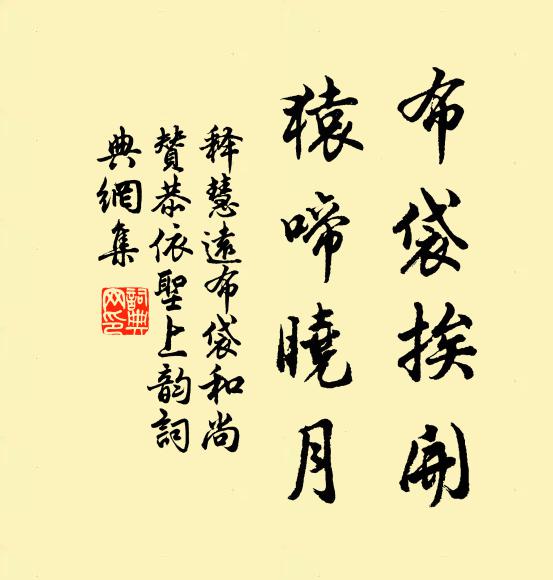 布袋挨開
猿啼曉月
释慧遠布袋和尚
贊恭依聖上韵詞
典網集
詞典
网印